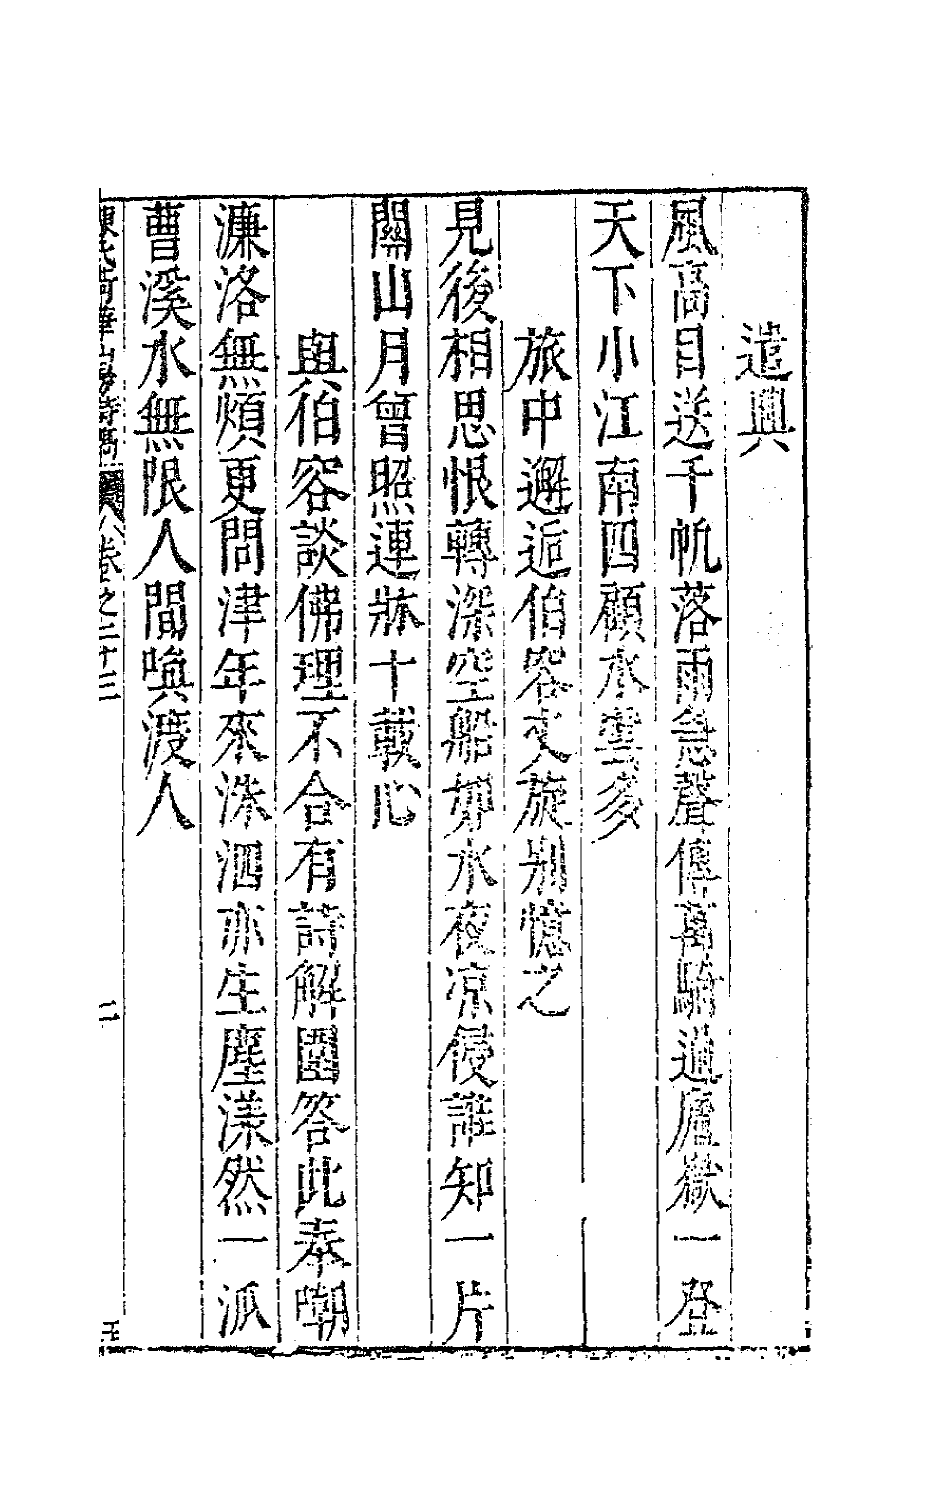 遣興
風高目送千帆落雨急聲傳萬騎過廬嶽一登
天下小江南四顧水雲多
旅中邂逅伯容丈旋别憶之
見後相思恨轉深空船如水夜凉侵誰知一片
關山月曾照連牀十載心
與伯容談佛理不合有詩解圍答此奉嘲
濂洛無煩更問津年來洙泗亦生塵漾然一派
曹溪水無限人間喚渡人
卷之二十三
二